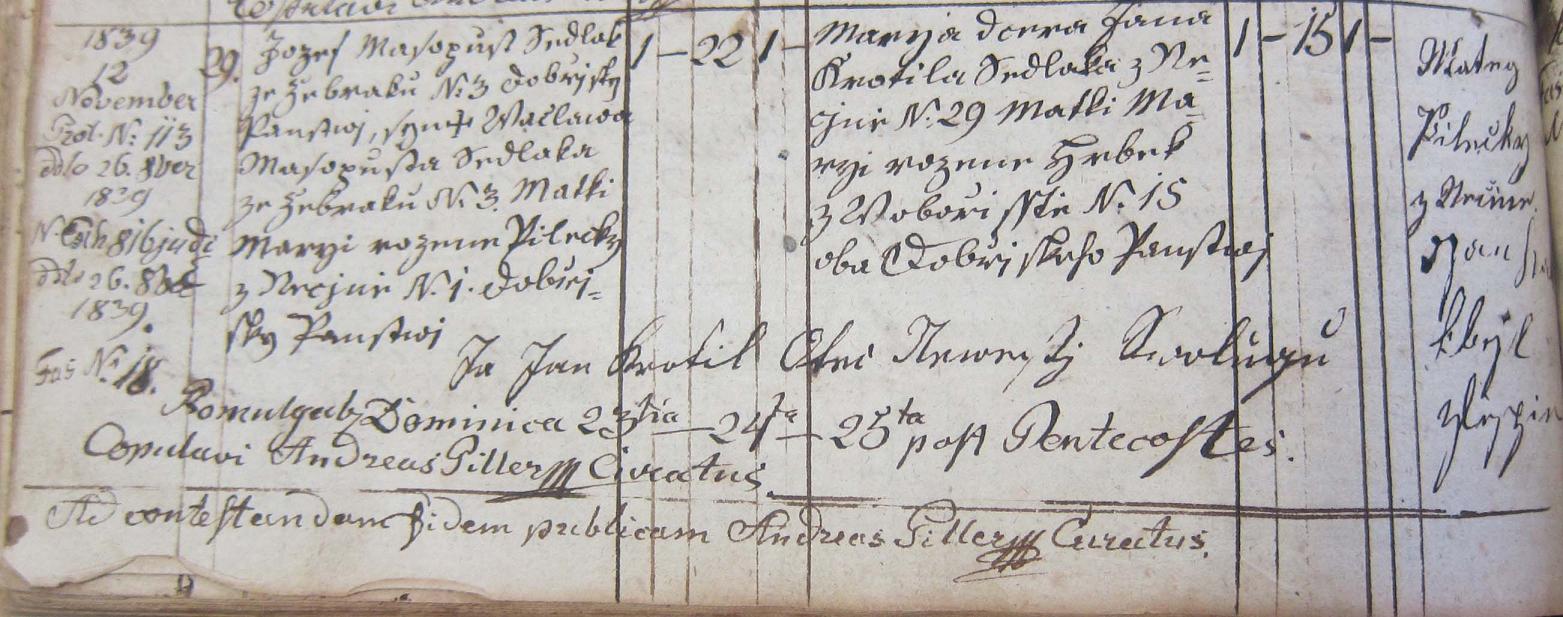 1839
12
November
Prot. N: 113
ddo 26. 8ber
1839
ddo 26.
1839.
Fas N: 18.
29.
Jozef Masopust Sedlak
ze Žebraku N: 3 Dobřisky
Panstwj, syn + Waclawa
Masopusta Sedlaka
ze Žebraku N: 3. Matki
Maryi rozene Pilecky
z Necjně N. 1. Dobři=
sky Panstwj
1 — 22 1 —
Maryia dcera Jana
Krotila Sedlaka z Ne=
cjně N: 29 Matki Ma
ryi rozene Hrbek
z Wobořisstě N. 15
oba Dobřiskeho Panstwj
1 — 15 1 —
Mateg
Pilecky
z
Jan
Ja Jan Krotil Otec Newesty Swolugu
Romulgabz Dominica 23tia — 24ta — 25ta post Pentecostes.
Copulavi Andreas Giller Curatus.
Ad contestandam Fidem publicam Andreas Giller Curatus.